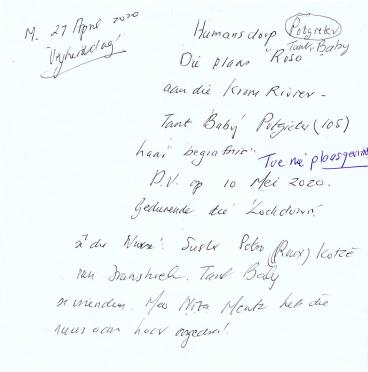 M. 27 April 2020
'Vryheidsdag'
Humansdorp Potgieter
Tant Baby
Die plaas "Roso"
aan die Krom Rivier -
Tant 'Baby' Potgieter (105)
haar begrafnis
D.V. op 10 Mei 2020.
Gedurende die 'Lockdown'.
Suster Petro (Roux) Kotzé
van Franskraal. Tant Baby
se vriendin. Mev Nita Mentz het die
nuus aan haar